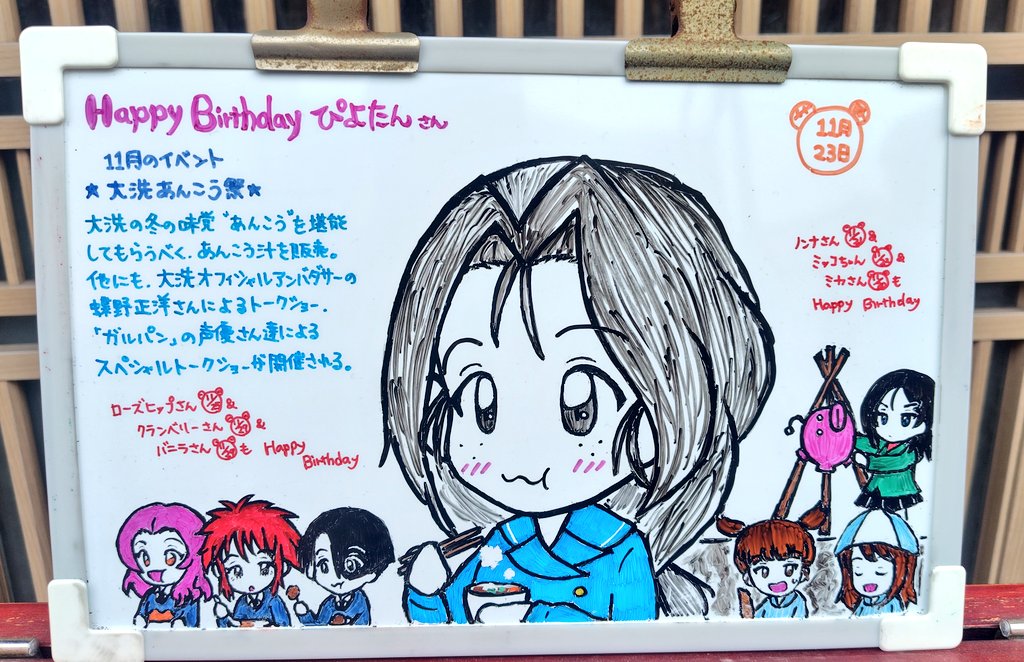 Happy Birthday ぴよたん さん
11月
23日
11月のイベント
★ 大洗あんこう祭★
大洗の冬の味覚"あんこう"を堪能
してもらうべく、あんこう汁を販売。
他にも、大洗オフィシャルアンバサダーの
蝶野正洋さんによるトークショー、
「ガルパン」の声優さん達による
スペシャルトークショーが開催される。
ノンナさん &
ミッコちゃん &
ミカさん も
Happy Birthday
ローズヒップさん &
クランベリーさん &
バニラさん も Happy
Birthday